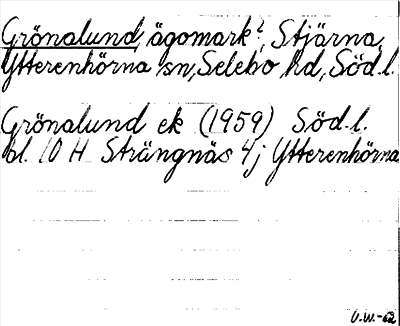 Grönalund ägomark?, Stjärna,
Ytterenhörna sn, Selebo hd, Söd.l.
Grönalund ek (1959) Söd.l.
bl. 10 H Strängnäs 4j Ytterenhörna
U.W.-62